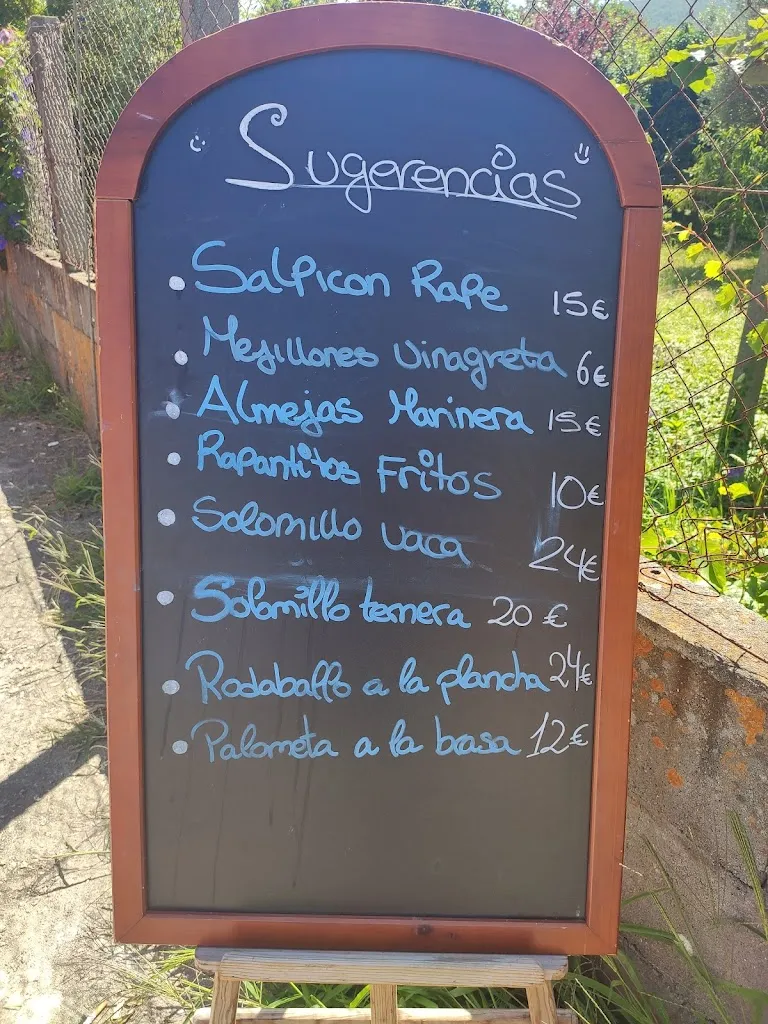 Sugerencias
Salpicon Rape 15€
Mejillones vinagreta 6€
Almejas Marinera 15€
Rapantitos Fritos 10€
Solomillo vaca 24€
Solomillo ternera 20€
Rodaballo a la plancha 24€
Palometa a la brasa 12€